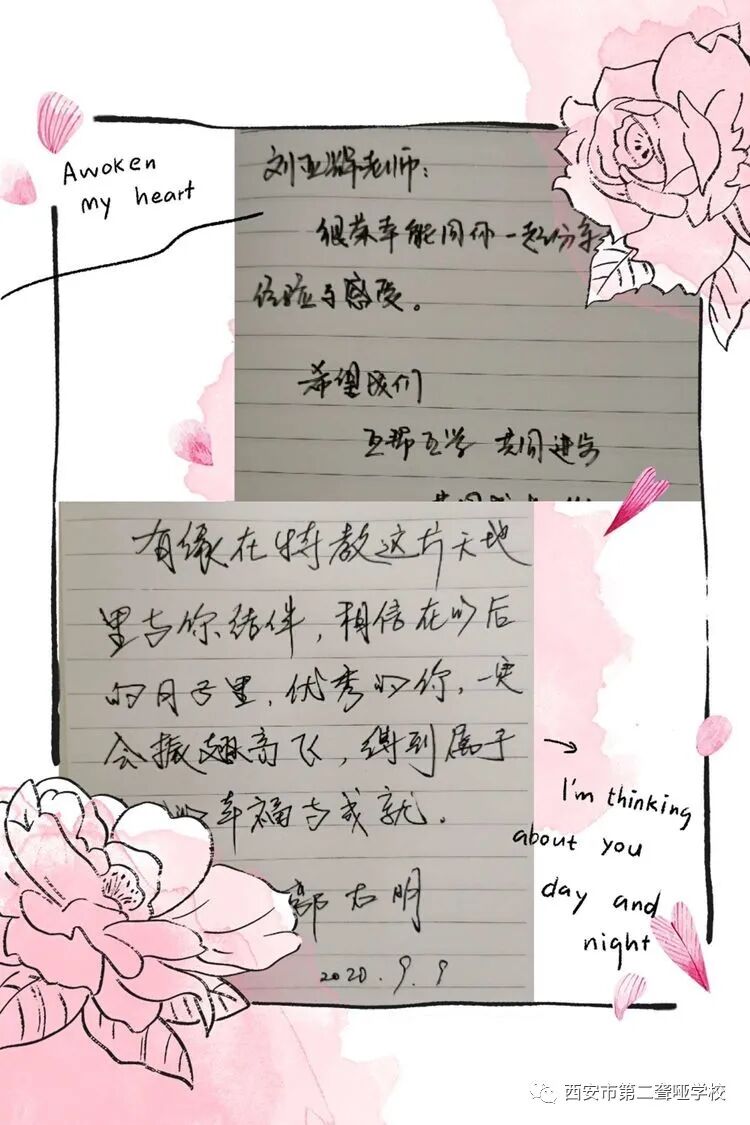 Awoken
my heart
刘亚辉老师：
很荣幸能同你一起分享
经验与感受。
希望我们
互帮互学 共同进步
有缘在特教这片天地
里与你结伴，相信在以后
的日子里，优秀的你，一定
会振翅高飞，得到属于
幸福与成就．
郭 明
2020．9．9
I'm thinking
about you
day and
night
西安市第二聋哑学校